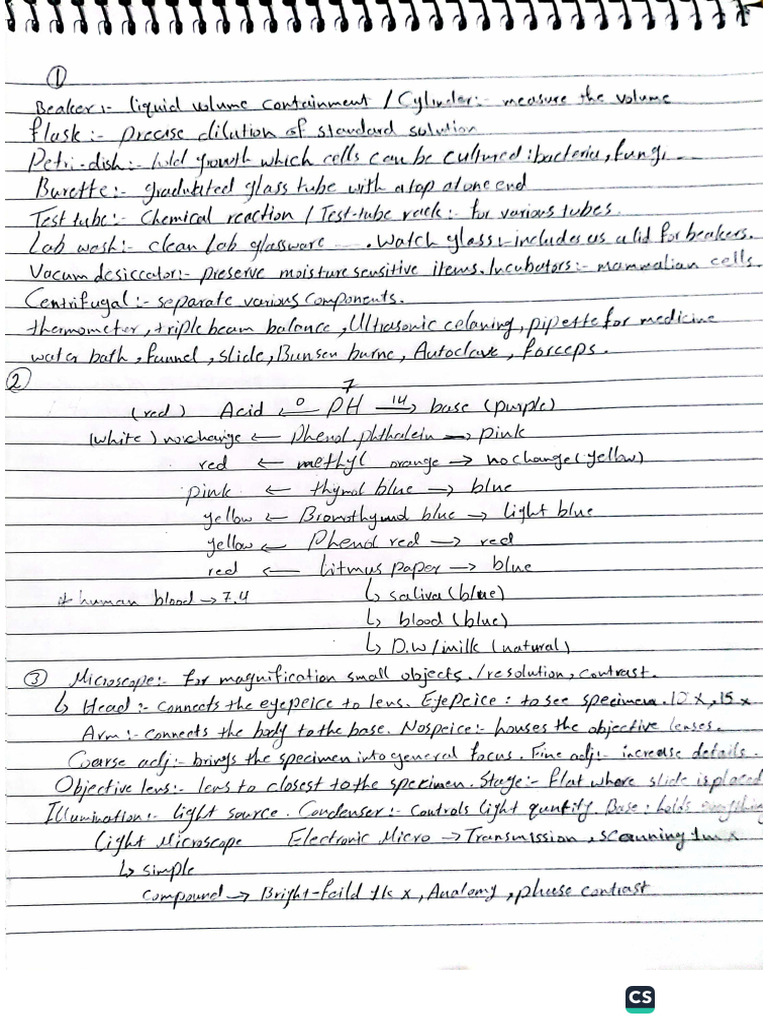 ①
Beaker :- liquid volume containment / Cylinder :- measure the volume
flask :- precise dilution of standard solution
Petri-dish :- hold growth which cells can be cultured : bacteria, fungi ---
Burette :- gradutited glass tube with a tap at one end
Test tube :- Chemical reaction / Test-tube rack :- for various tubes.
Lab wash :- clean lab glassware ---- . Watch glass :- includes as a lid for beakers.
Vacum desiccator :- preserve moisture sensitive items. Incubators :- mammalian cells.
Centrifugal :- separate various components.
thermometer, triple beam balance, Ultrasonic celaning, pipette for medicine
water bath, funnel, slide, Bunsen burne, Autoclave, forceps.
②
7
(red) Acid ←0 PH 14→ base (purple)
(white) no change ← Phenol phthalein → pink
red ← methyl orange → no change (yellow)
pink ← thymol blue → blue
yellow ← Bromothymol blue → light blue
yellow ← Phenol red → red
red ← Litmus paper → blue
# human blood → 7.4 ↳ saliva (blue)
↳ blood (blue)
↳ D.W/milk (natural)
③ Microscope :- for magnification small objects. / resolution, contrast.
↳ Head :- connects the eyepeice to lens. Eyepeice : to see specimen. 10x, 15x
Arm :- connects the body to the base. Nospeice :- houses the objective lenses.
Coarse adj :- brings the specimen into general focus. Fine adj :- increase details.
Objective lens :- lens to closest to the specimen. Stage :- flat where slide is placed
Illumination :- light source. Condenser :- Controls light quntity. Base : holds everything
Light Microscope Electronic Micro → Transmission, scanning 1m x
↳ simple
compound → Bright-feild 1k x, , phase contrast
CS